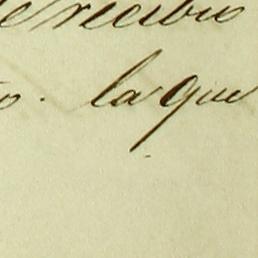 se recibio
o. la que